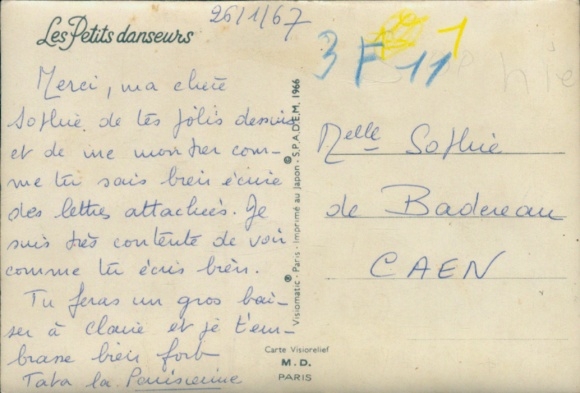 Les Petits danseurs
26/1/67
3 F 11 1
Merci, ma chère
Sophie de tes jolis dessins
et de me montrer com-
me tu sais bien écrire
des lettres attachées. Je
suis très contente de voir
comme tu écris bien.
Tu feras un gros bai-
ser à Claire et je t'em-
brasse bien fort
Tata la Parisienne
Visiomatic - Paris - Imprimé au Japon - © S.P.A.D.E.M. 1966
Carte Visiorelief
M. D.
PARIS
Melle Sophie
de Badereau
CAEN